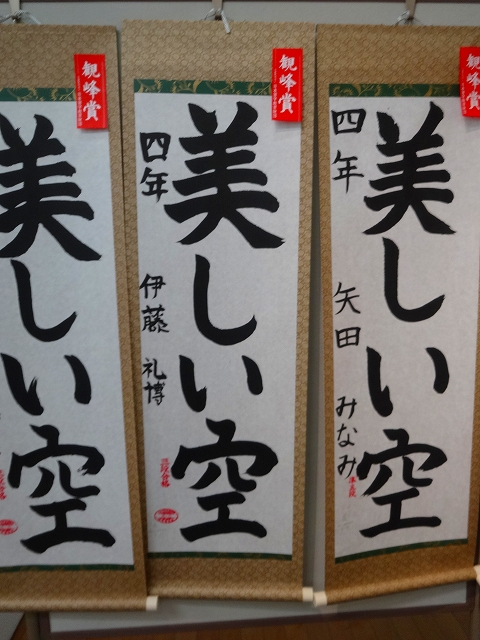 観峰賞
美しい空
四年 矢田 みなみ
観峰賞
美しい空
四年 伊藤 礼博
観峰賞
美しい空